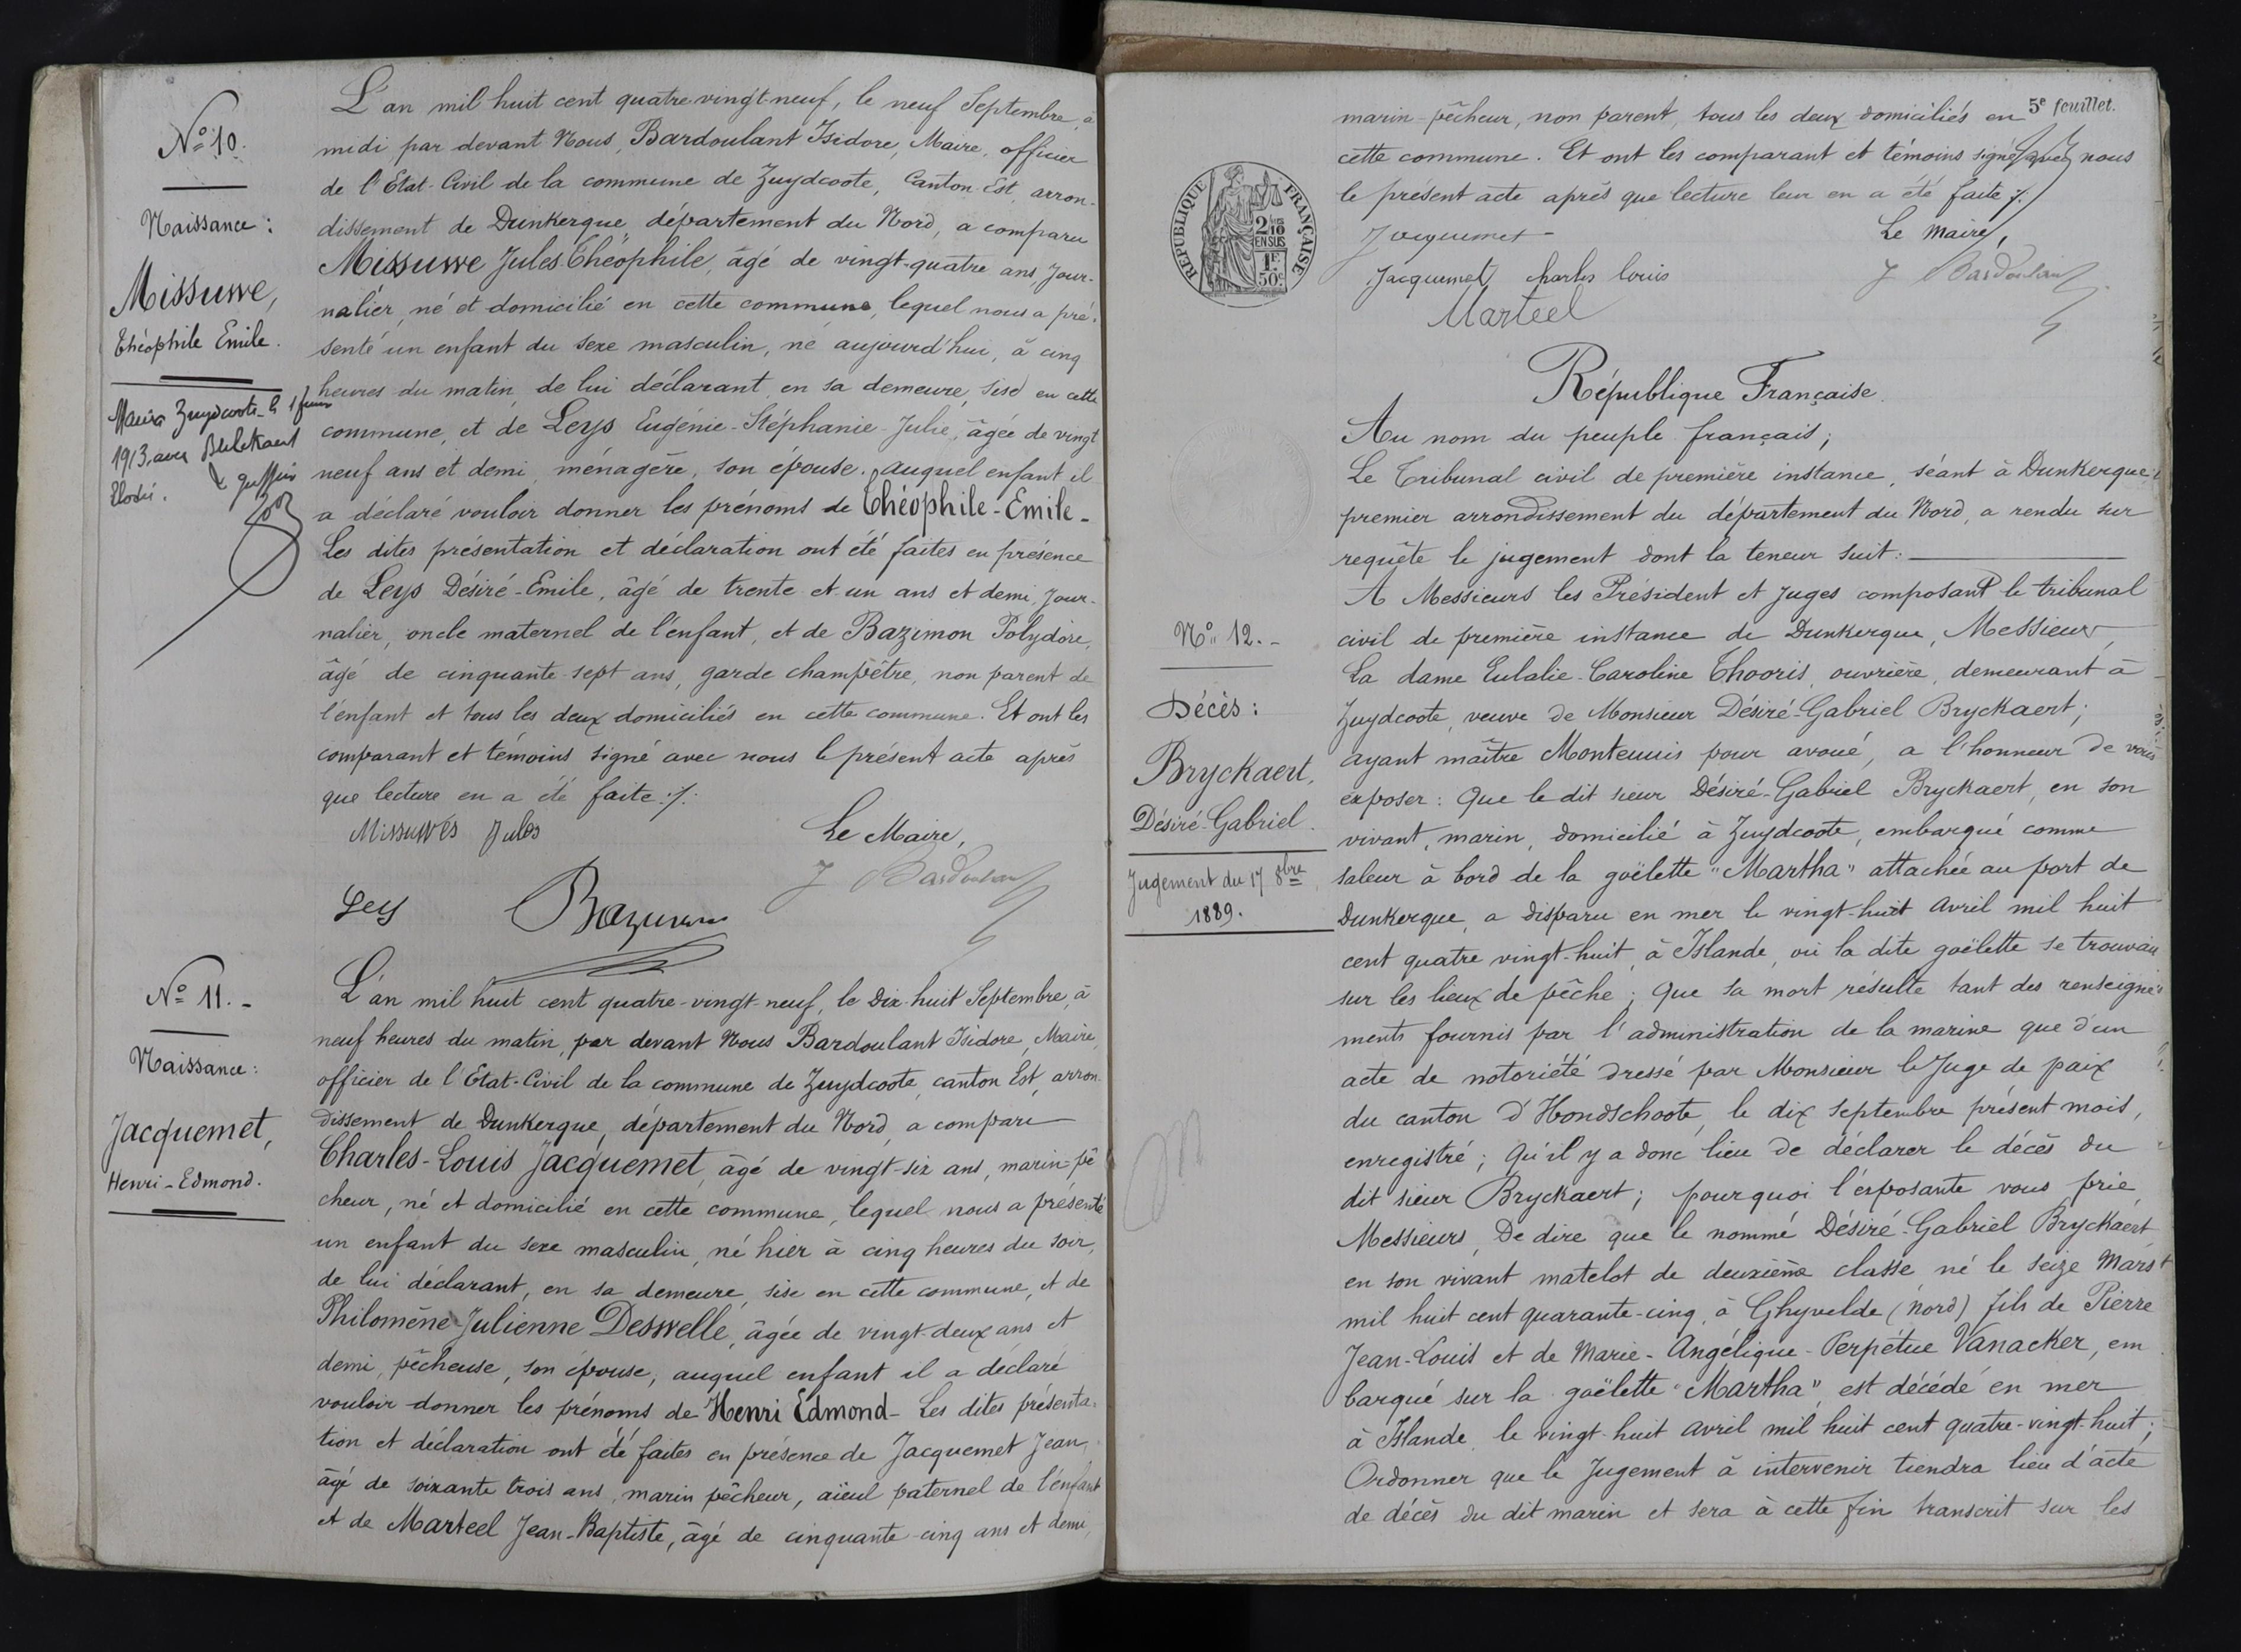 N° 10.
Naissance :
Missuwe,
Théophile Emile.
Zuydcoote le 1
1913, avec
Elodie.
L'an mil huit cent quatre vingt-neuf, le neuf Septembre, à
midi, par devant Nous, Bardoulant Isidore, Maire, officier
de l'Etat-Civil de la commune de Zuydcoote, Canton Est, arron-
dissement de Dunkerque, département du Nord, a comparu
Missuwe Jules-Théophile, âgé de vingt-quatre ans, jour-
nalier, né et domicilié en cette commune, lequel nous a pré-
senté un enfant du sexe masculin, né aujourd'hui, à cinq
heures du matin, de lui déclarant, en sa demeure, sise en cette
commune, et de Leys Eugénie-Stéphanie-Julie, âgée de vingt
neuf ans et demi, ménagère, son épouse. auquel enfant il
a déclaré vouloir donner les prénoms de Théophile-Emile-
Les dites présentation et déclaration ont été faites en présence
de Leys Désiré-Emile, âgé de trente et un ans et demi, jour-
nalier, oncle maternel de l'enfant, et de Bazimon Polydore,
âgé de cinquante sept ans, garde champêtre, non parent de
l'enfant et tous les deux domiciliés en cette commune. Et ont les
comparant et témoins signé avec nous le présent acte après
que lecture en a été faite ./.
Missuwes Jules
Le Maire,
J Bardoulant
Leys
N° 11. -
Naissance :
Jacquemet,
Henri-Edmond.
L'an mil huit cent quatre-vingt-neuf, le dix-huit Septembre, à
neuf heures du matin, par devant Nous Bardoulant Isidore, Maire,
officier de l'Etat-Civil de la commune de Zuydcoote, canton Est, arron
dissement de Dunkerque, département du Nord, a comparu
Charles-Louis Jacquemet, âgé de vingt-six ans, marin-pê
cheur, né et domicilié en cette commune, lequel nous a présenté
un enfant du sexe masculin, né hier à cinq heures du soir,
de lui déclarant, en sa demeure, sise en cette commune, et de
Philomène-Julienne Deswelle, âgée de vingt-deux ans et
demi, pêcheuse, son épouse, auquel enfant il a déclaré
vouloir donner les prénoms de Henri Edmond - Les dites présenta-
tion et déclaration ont été faites en présence de Jacquemet Jean,
âgé de soixante trois ans, marin pêcheur, aïeul paternel de l'enfant
et de Marteel Jean-Baptiste, âgé de cinquante-cinq ans et demi,
5e feuillet.
marin-pêcheur, non parent, tous les deux domiciliés en
cette commune. Et ont les comparant et témoins signé avec nous
le présent acte après que lecture leur en a été faite ./.
Jacquemet
Le Maire,
Jacquemet Charles louis
J Bardoulant
Marteel
RÉPUBLIQUE FRANÇAISE
2/10
EN SUS
1F
50c
République Française.
Au nom du peuple français ;
Le Tribunal civil de première instance, séant à Dunkerque
premier arrondissement du département du Nord, a rendu sur
requête le jugement dont la teneur suit :
A Messieurs les Président et Juges composant le tribunal
civil de première instance de Dunkerque, Messieurs,
N° 12. -
Décès :
Bryckaert,
Désiré-Gabriel.
Jugement du 17 8bre
1889.
La dame Eulalie-Caroline Thooris, ouvrière, demeurant à
Zuydcoote, veuve de Monsieur Désiré-Gabriel Bryckaert ;
ayant maître Montenuis pour avoué, a l'honneur de vous
exposer : Que le dit sieur Désiré-Gabriel Bryckaert, en son
vivant, marin, domicilié à Zuydcoote, embarqué comme
saleur à bord de la goëlette "Martha" attachée au port de
Dunkerque, a disparu en mer le vingt-huit Avril mil huit
cent quatre vingt-huit, à Islande, où la dite goëlette se trouvait
sur les lieux de pêche ; Que sa mort résulte tant des renseigne-
ments fournis par l'administration de la marine que d'un
acte de notoriété dressé par Monsieur le Juge de paix
du canton d'Hondschoote, le dix septembre présent mois,
enregistré ; Qu'il y a donc lieu de déclarer le décès du
dit sieur Bryckaert ; pourquoi l'exposante vous prie
Messieurs, De dire que le nommé Désiré-Gabriel Bryckaert
en son vivant matelot de deuxième classe né le seize Mars
mil huit cent quarante-cinq, à Ghyvelde (nord) fils de Pierre
Jean-Louis et de Marie-Angélique-Perpétue Vanacker, em
barqué sur la goëlette "Martha", est décédé en mer
à Islande le vingt-huit avril mil huit cent quatre-vingt-huit ;
Ordonner que le Jugement à intervenir tiendra lieu d'acte
de décès du dit marin et sera à cette fin transcrit sur les